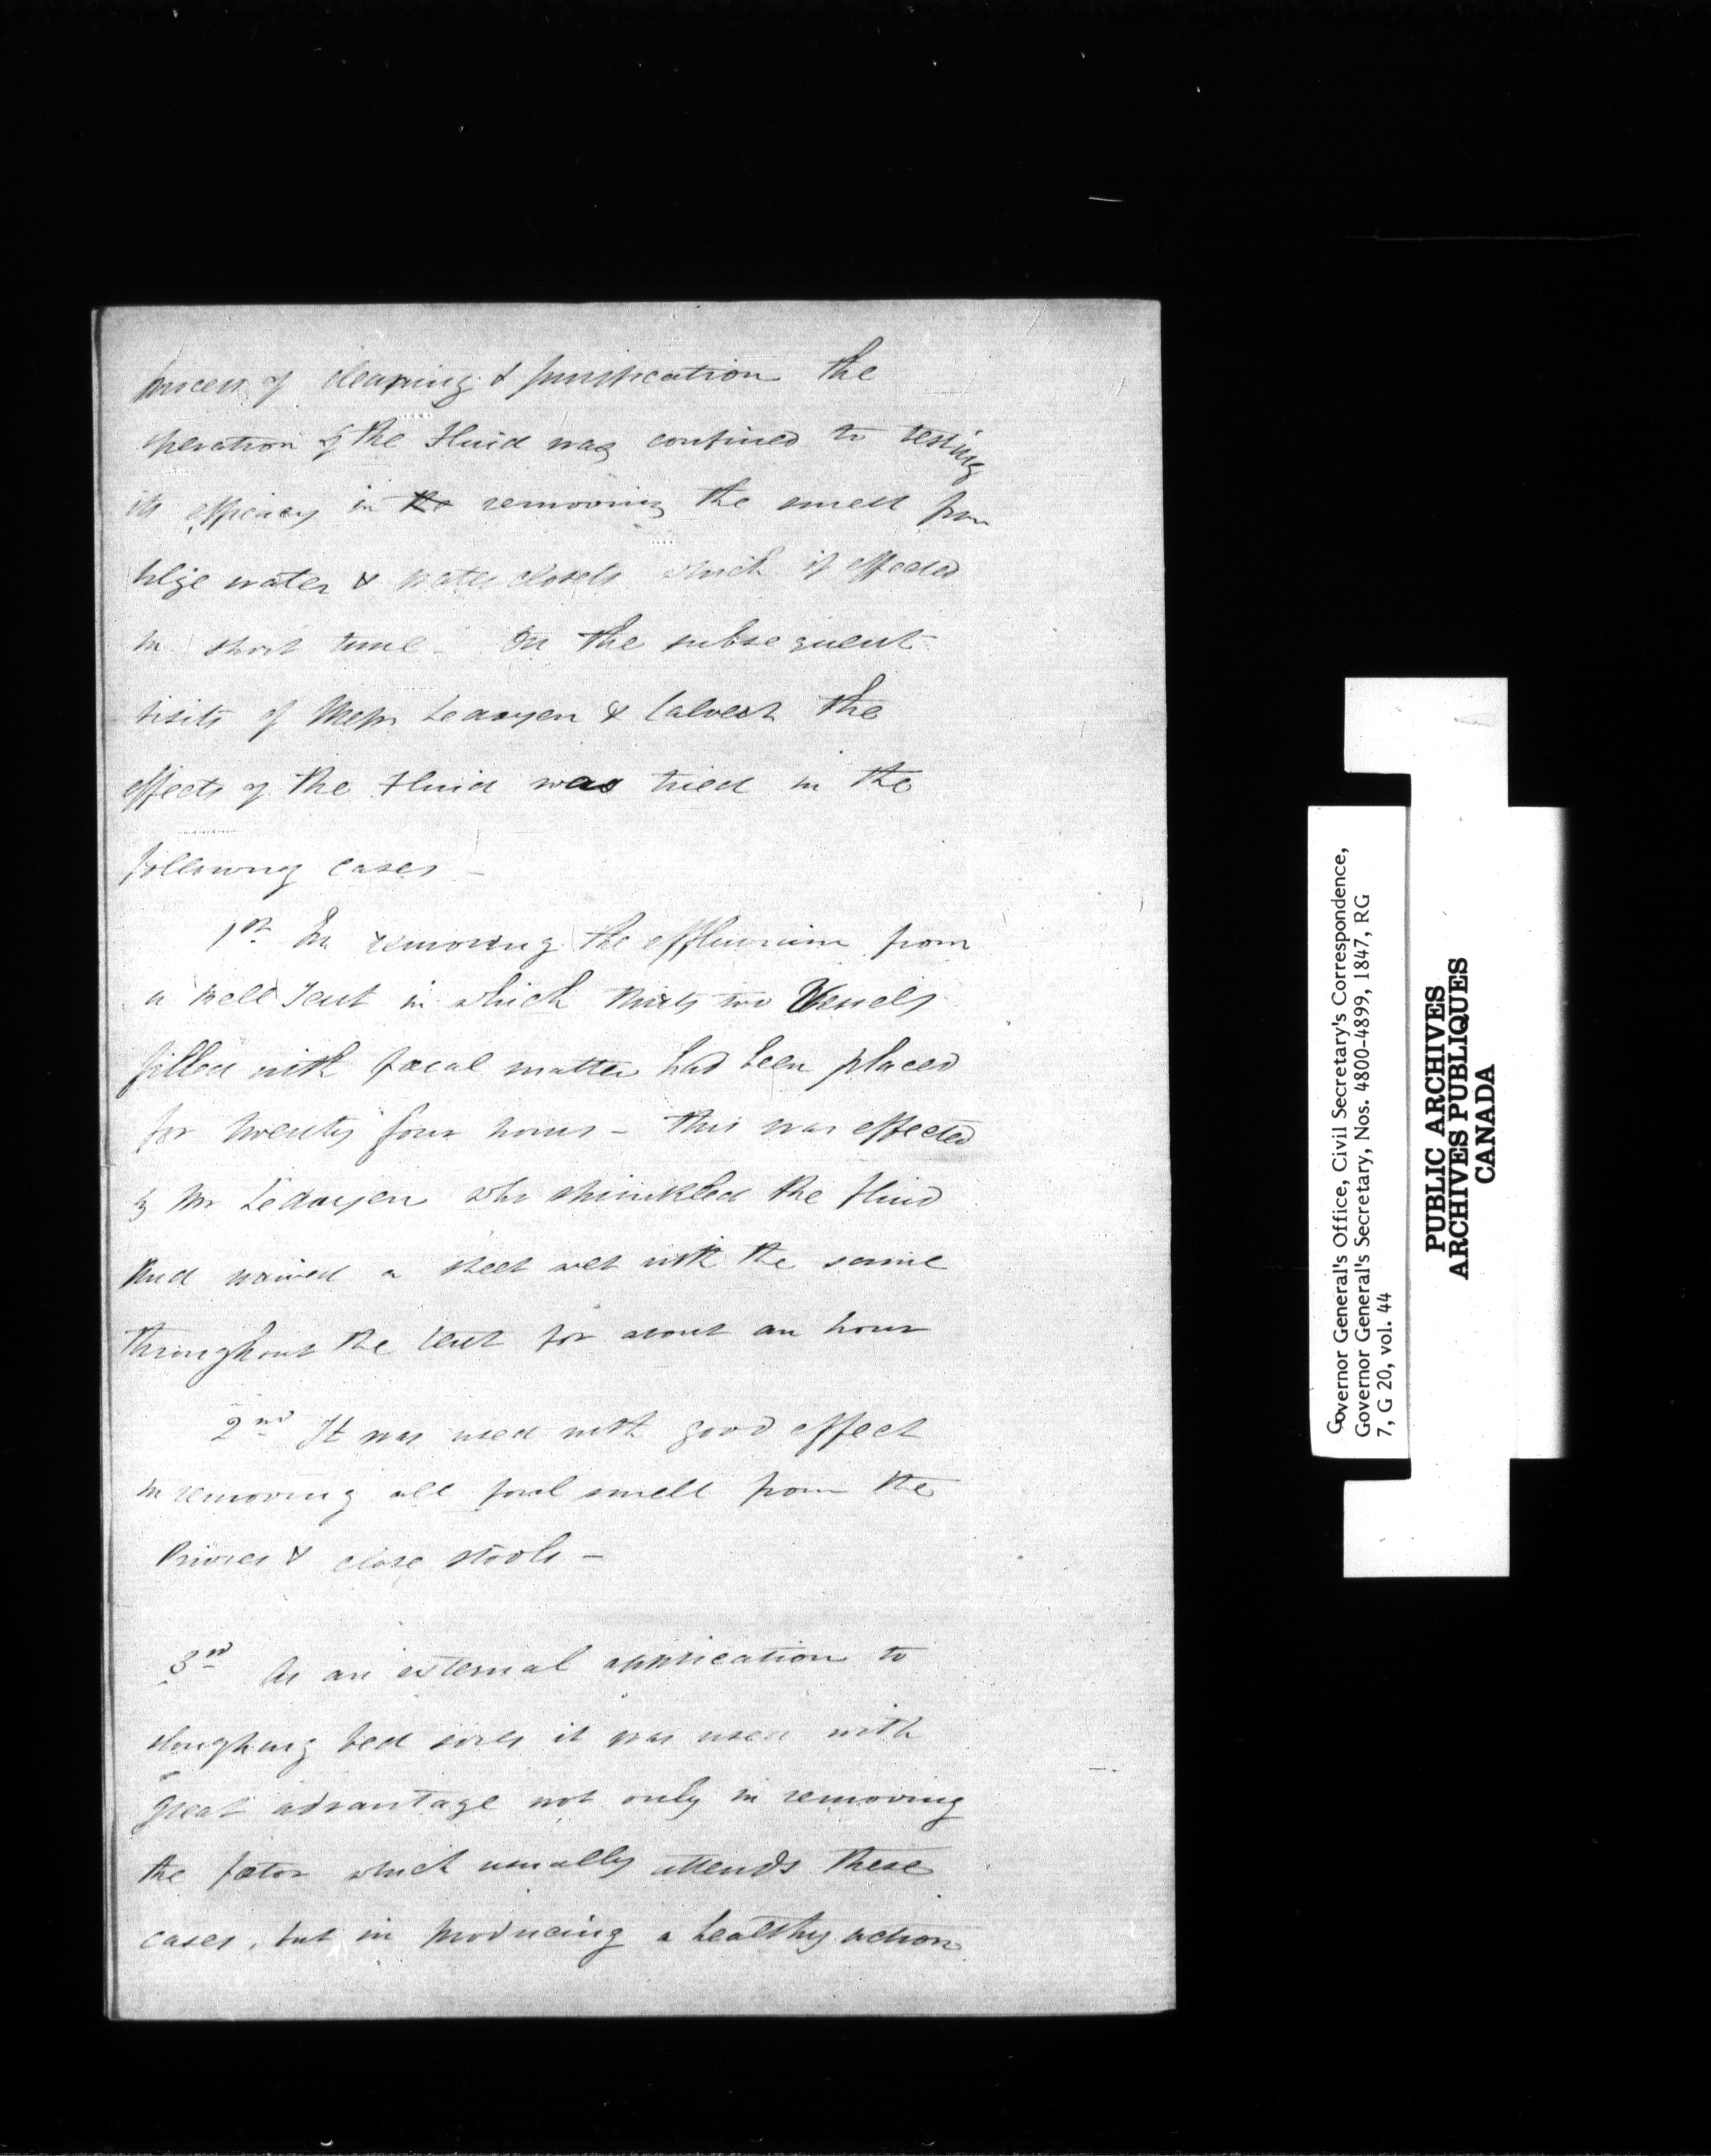 process of cleaning & purification the
operation of the Fluid was confined to testing
its efficacy in the removing the smell from
bilge water & water closets which it effected
in short time - In the subsequent
visits of Messrs Ledoyen & Calvert the
effects of the Fluid was tried in the
following cases -
1st In removing the effluvium from
a Bell Tent in which thirty two Vessels
filled with fœcal matter had been placed
for twenty four hours - this was effected
by Mr Ledoyen who sprinkled the fluid
and waived a sheet wet with the same
throughout the tent for about an hour
2nd It was used with good effect
in removing all foul smell from the
Privies & close stools -
3rd As an external application to
sloughing bed sores it was used with
great advantage not only in removing
the fœtor which usually attends these
cases, but in producing a healthy action
Governor General's Office, Civil Secretary's Correspondence,
Governor General's Secretary, Nos. 4800-4899, 1847, RG
7, G 20, vol. 44
PUBLIC ARCHIVES
ARCHIVES PUBLIQUES
CANADA